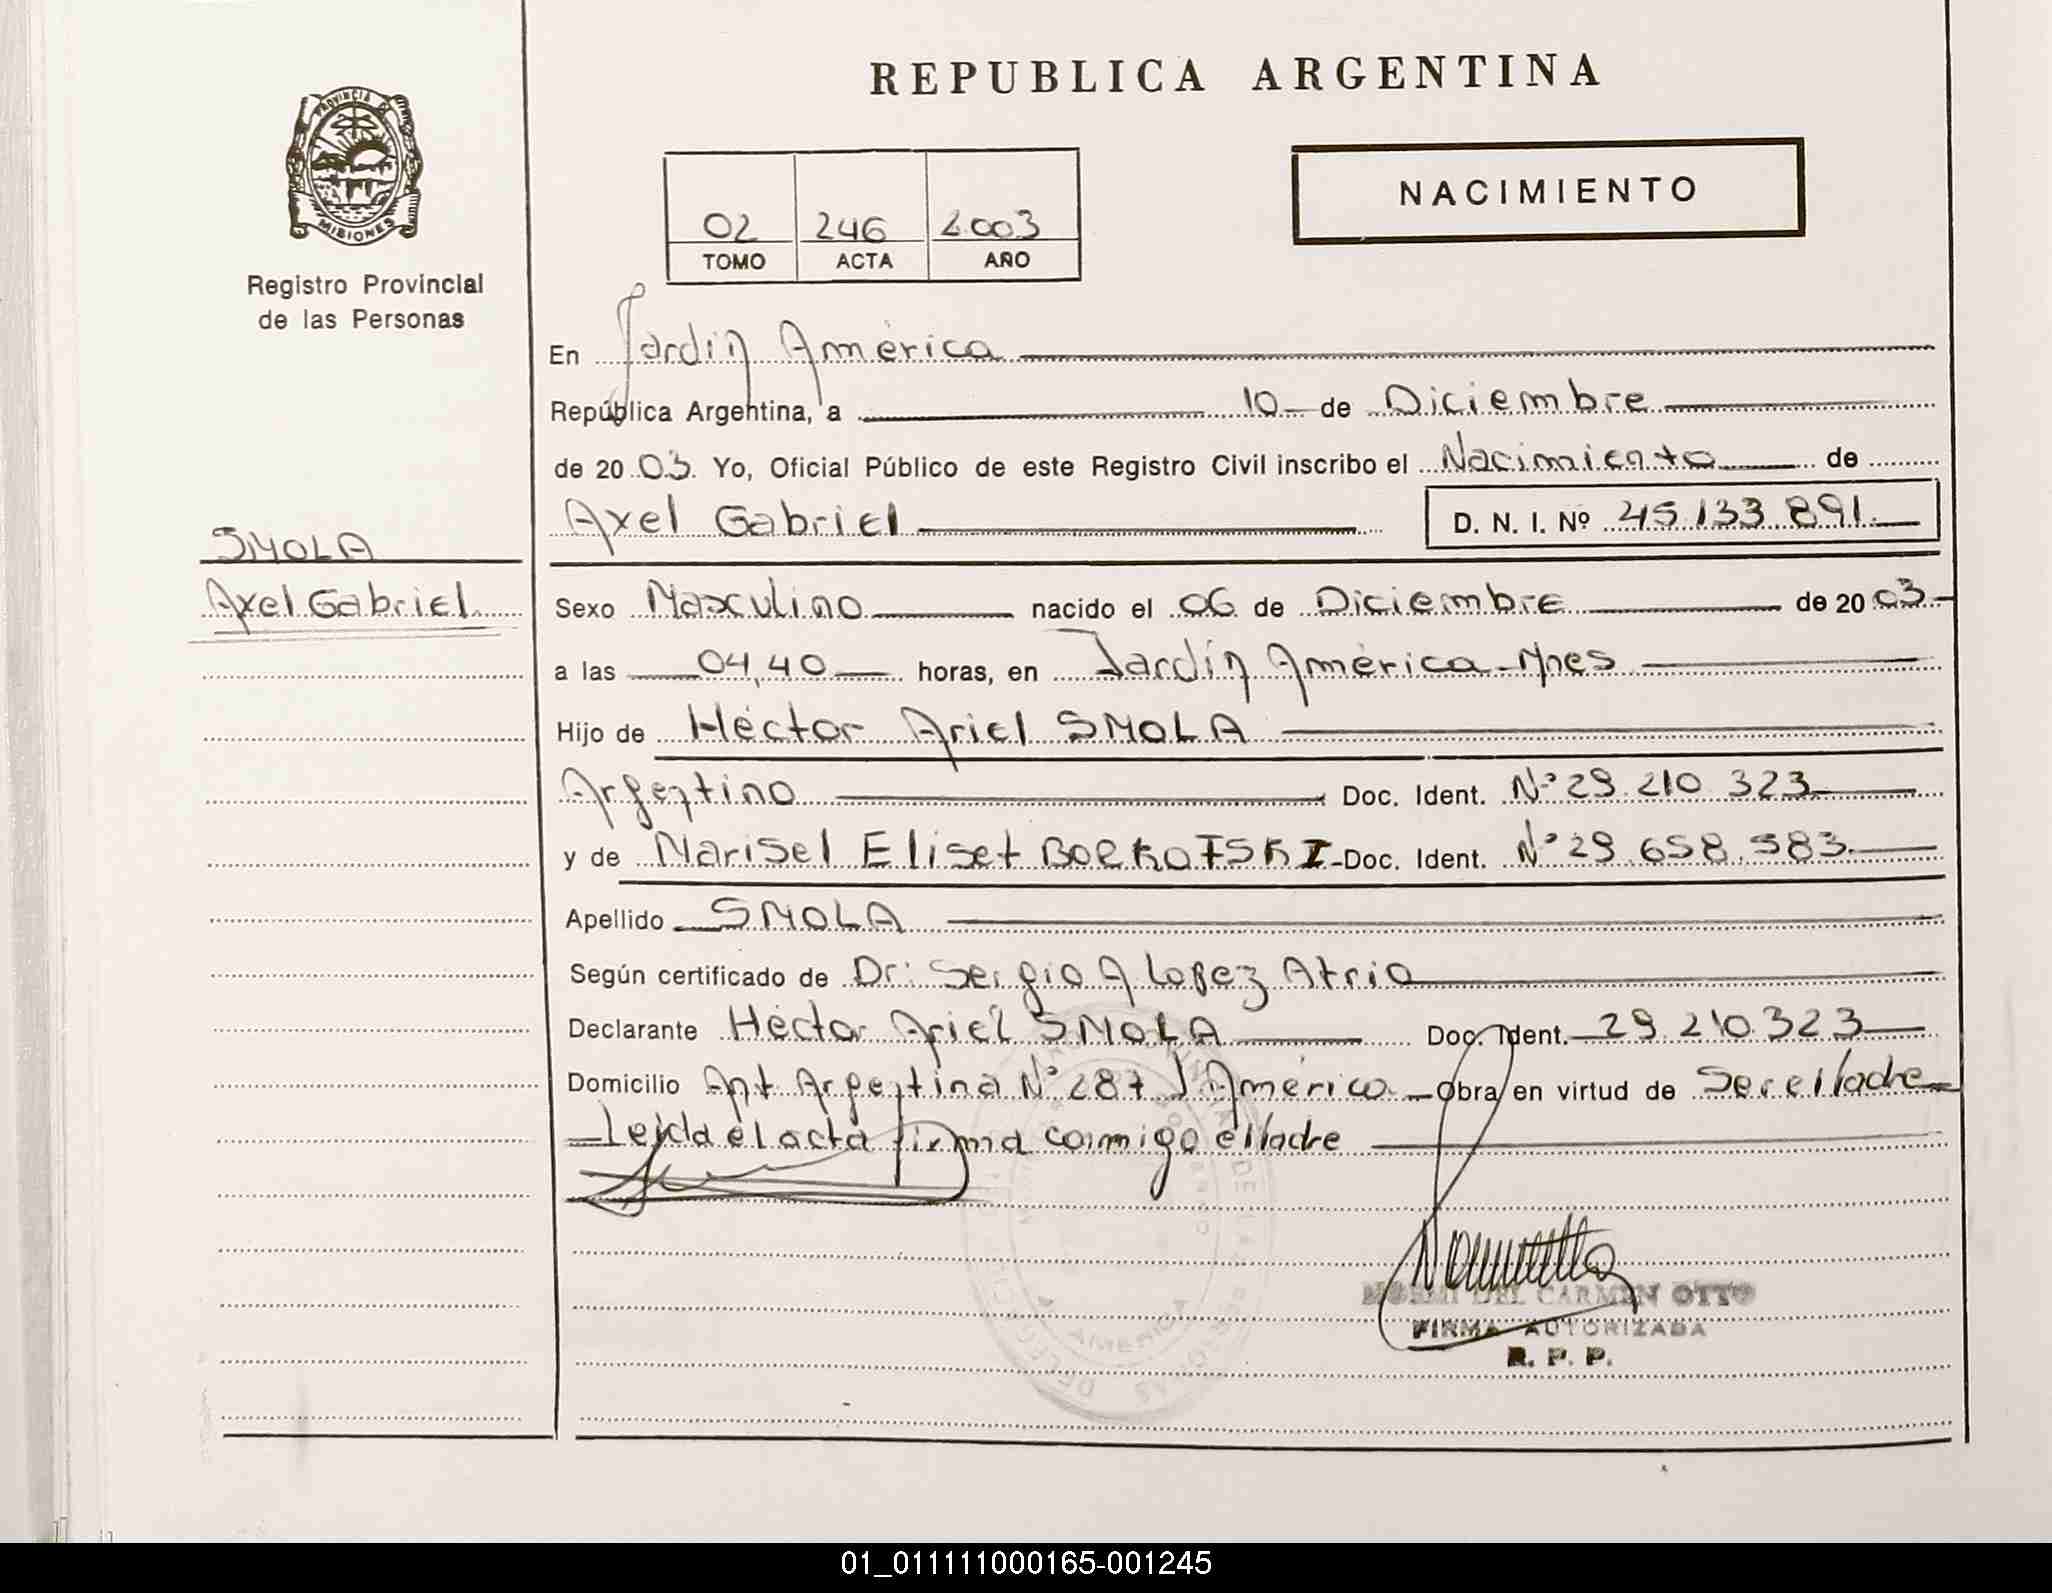 REPUBLICA ARGENTINA
PROVINCIA DE
MISIONES
Registro Provincial
de las Personas
02 246 2.003
TOMO ACTA AÑO
NACIMIENTO
En Jardín América
República Argentina, a 10 de Diciembre
de 2003. Yo, Oficial Público de este Registro Civil inscribo el Nacimiento de
Axel Gabriel D. N. I. Nº 45.133.891.
SMOLA
Axel Gabriel
Sexo Masculino nacido el 06 de Diciembre de 2003
a las 04,40 horas, en Jardín América-Mnes
Hijo de Héctor Ariel SMOLA
Argentino Doc. Ident. Nº 29.210.323
y de Marisel Eliset Doc. Ident. Nº 29.658.583
Apellido SMOLA
Según certificado de Dr: Sergio A Lopez Atrio
Declarante Héctor Ariel SMOLA Doc. Ident. 29.210.323
Domicilio Ant Argentina Nº 287 J América Obra en virtud de Ser el Padre
Leida el acta firma conmigo el Padre
NOEMI DEL CARMEN OTTO
FIRMA AUTORIZADA
R. P. P.
01_011111000165-001245